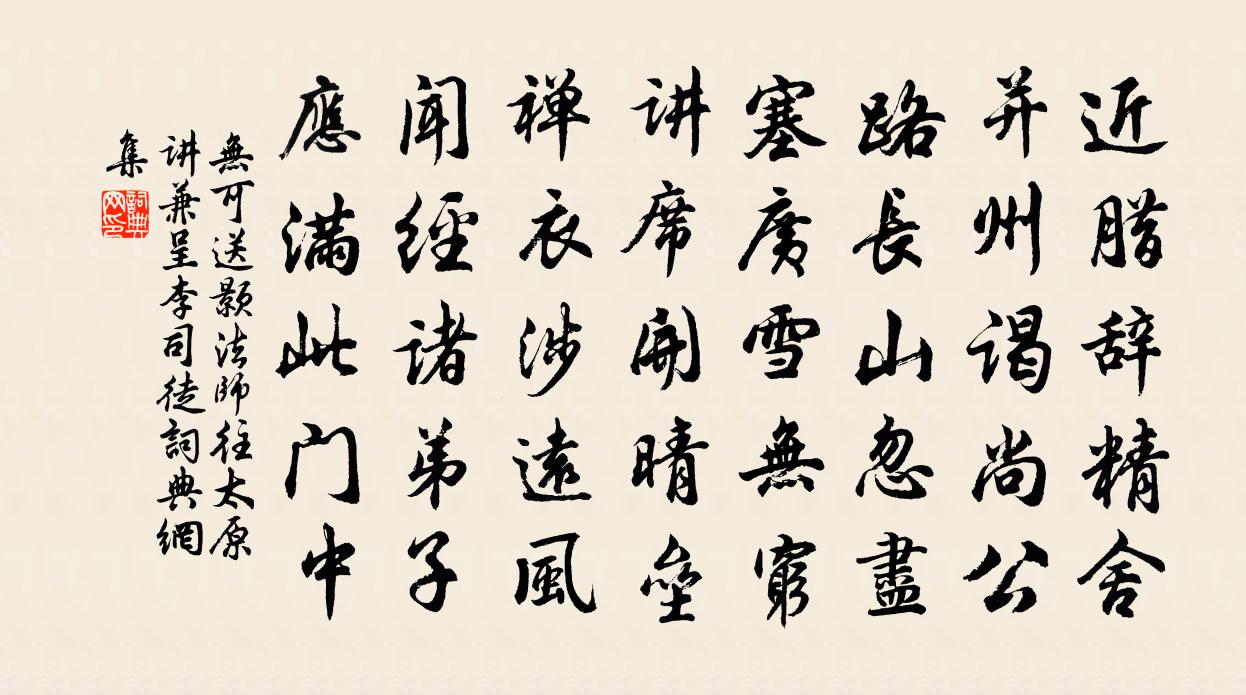 近腊辞精舍
并州谒尚公
路長山忽盡
塞廣雪無窮
讲席開晴壘
禅衣涉遠風
闻經諸弟子
應滿此门中
無可送颢法師往太原
讲兼呈李司徒詞典網
集
詞典網印